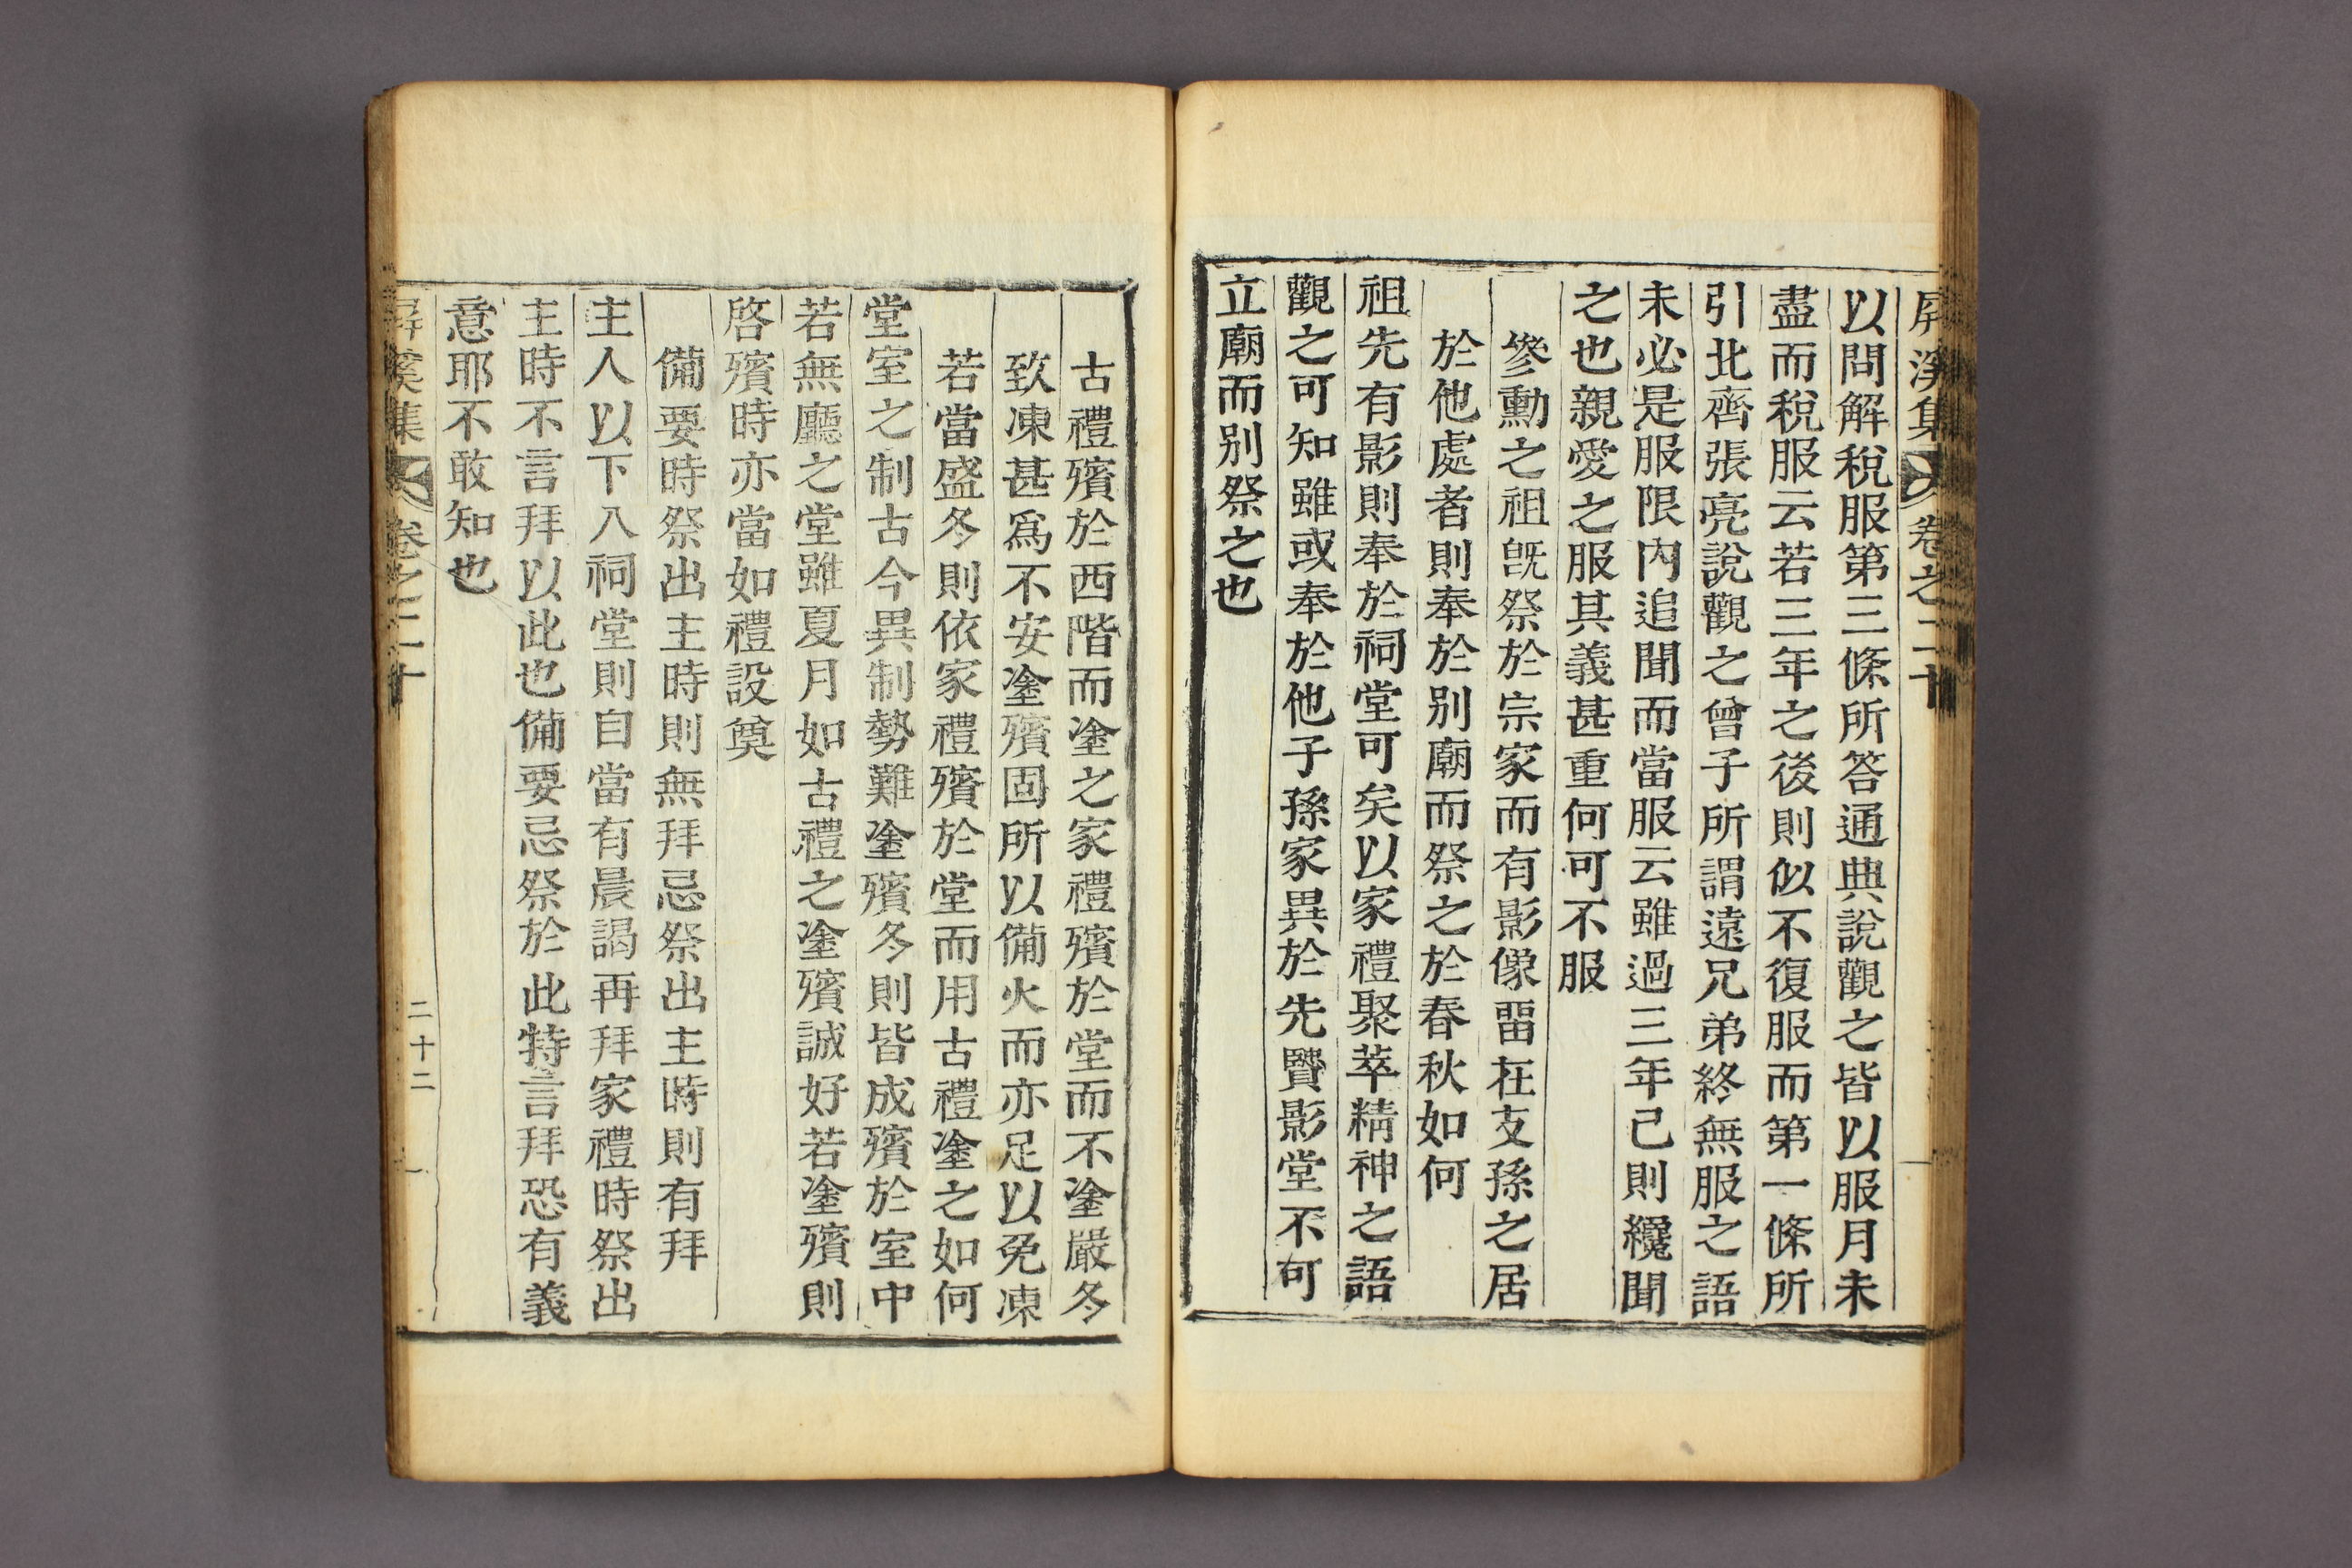 屛溪集 卷之二十
以問解稅服第三條所答通典說觀之皆以服月未
盡而稅服云若三年之後則似不復服而第一條所
引北齊張亮說觀之曾子所謂遠兄弟終無服之語
未必是服限內追聞而當服云雖過三年己則纔聞
之也親愛之服其義甚重何可不服
參勳之祖旣祭於宗家而有影像留在支孫之居
於他處者則奉於別廟而祭之於春秋如何
祖先有影則奉於祠堂可矣以家禮聚萃精神之語
觀之可知雖或奉於他子孫家異於先賢影堂不可
立廟而別祭之也
古禮殯於西階而塗之家禮殯於堂而不塗嚴冬
致凍甚爲不安塗殯固所以備火而亦足以免凍
若當盛冬則依家禮殯於堂而用古禮塗之如何
堂室之制古今異制勢難塗殯冬則皆成殯於室中
若無廳之堂雖夏月如古禮之塗殯誠好若塗殯則
啓殯時亦當如禮設奠
備要時祭出主時則無拜忌祭出主時則有拜
主人以下入祠堂則自當有晨謁再拜家禮時祭出
主時不言拜以此也備要忌祭於此特言拜恐有義
意耶不敢知也
屛溪集 卷之二十 二十二